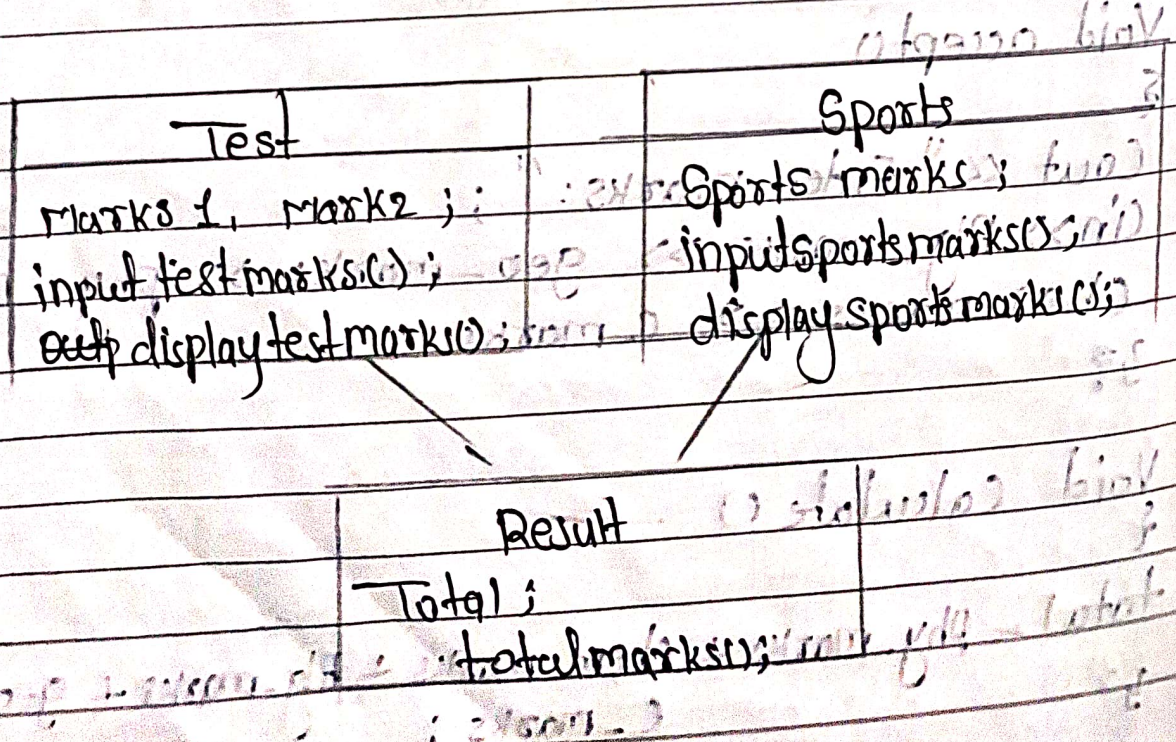 Test
Marks 1, Mark2 ;
input testmarks() ;
displaytestmarks() ;
Sports
Sports marks ;
inputsportsmarks() ;
displaysportsmarks() ;
Result
Total ;
totalmarks() ;